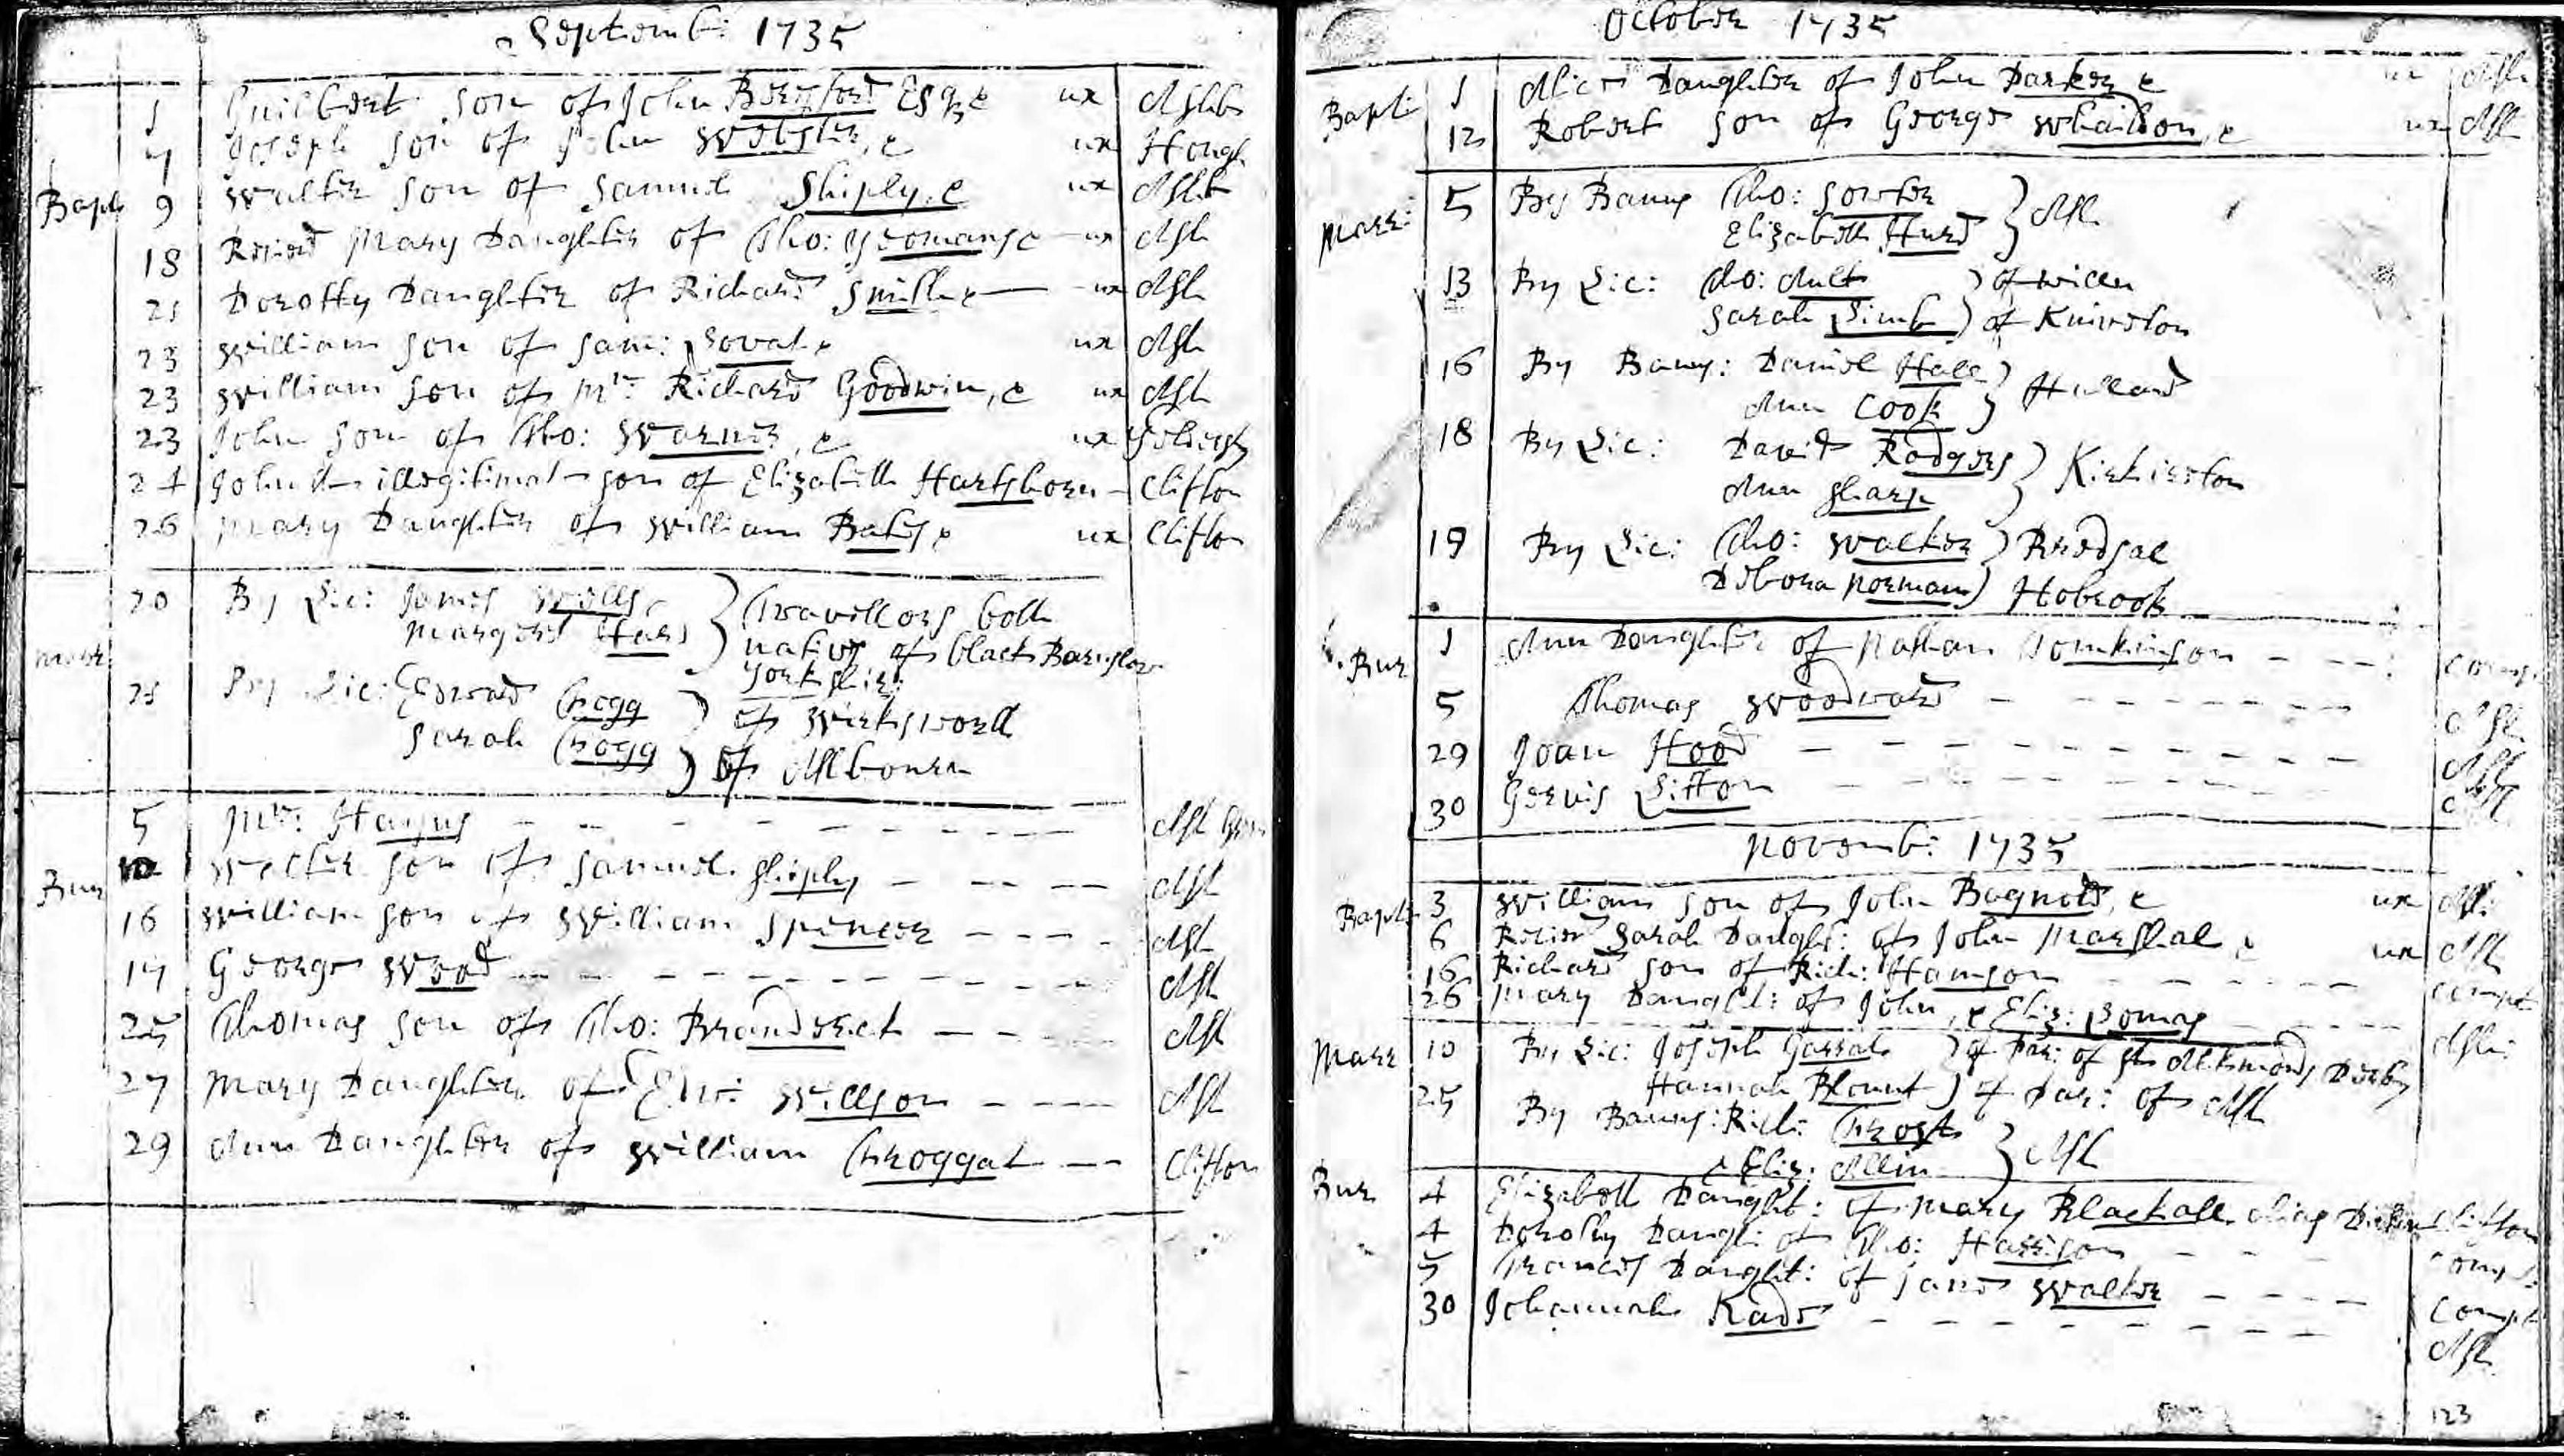 Septemb: 1735
1 Guilbert son of John Beresford Esqr & ux Ashb
7 Joseph son of John Webster, & ux Hough
Bapt 9 Walter son of Samuel Shiply, & ux Ashb
18 Mary Daughter of Tho: Yeomans & ux Ash
21 Dorothy Daughter of Richard Smith & ux Ash
23 William son of Sam: & ux Ash
23 William son of Mr. Richard Goodwin, & ux Ash
23 John son of Tho: Warner, & ux
24 John the illegitimate son of Elizabeth Hartshorn Clifton
26 Mary Daughter of William Bates & ux Clifton
20 By Lic: James Wills Travillors both
Marr Margert natives of black Barnsley
Yorkshire
21 By Lic: Edward Twigg of Wirksworth
Sarah Twigg of Ashbourn
5 Mr: Haynes Ash
10 Walter son of Samuel Shiply Ash
Bur
16 William son of William Spencer Ash
17 George Wood Ash
25 Thomas son of Tho: Brandreth Ash
27 Mary Daughter of Edw: Willson Ash
29 Ann Daughter of William Froggat Clifton
October 1735
Bapt: 1 Alice Daughter of John Parker & ux Ash
12 Robert son of George Whaildon, & ux Ash
Marr: 5 By Banns Tho: Sowter Ash
Elizabeth Hurd
13 By Lic: Tho: Ault of
Sarah Limb of Kniveton
16 By Banns: Daniel Hall Hulland
Ann Cook
18 By Lic: David Rodgers Kirkireton
Ann Sharp
19 By Lic: Tho: Walker Bredsal
Debora Norman Hobrook
Bur 1 Ann Daughter of Nathan Tomkinson Comp:
5 Thomas Woodward Ash
29 Joan Hood Ash
30 Gervis Sitton Ash
Novemb: 1735
Bapt: 3 William son of John Bagnold, & ux Ash:
6 Sarah Daught: of John Marshal & ux Ash
16 Richard son of Rich: Hamson Compt
26 Mary Daught: of John, & Eliz: Ash:
Marr 10 By Lic: Joseph Garrat of Par: of St Alkmonds Derby
Hannah Blount of Par: of Ash
25 By Banns: Rich: Frost Ash
& Eliz: Allin
Bur 4 Elizabeth Daught: of Mary Blackall alias Clifton
4 Dorothy Daugh: of Tho: Harrison Comp:
5 Frances Daught: of Jane Walker Compt
30 Johannah Kade Ash
123